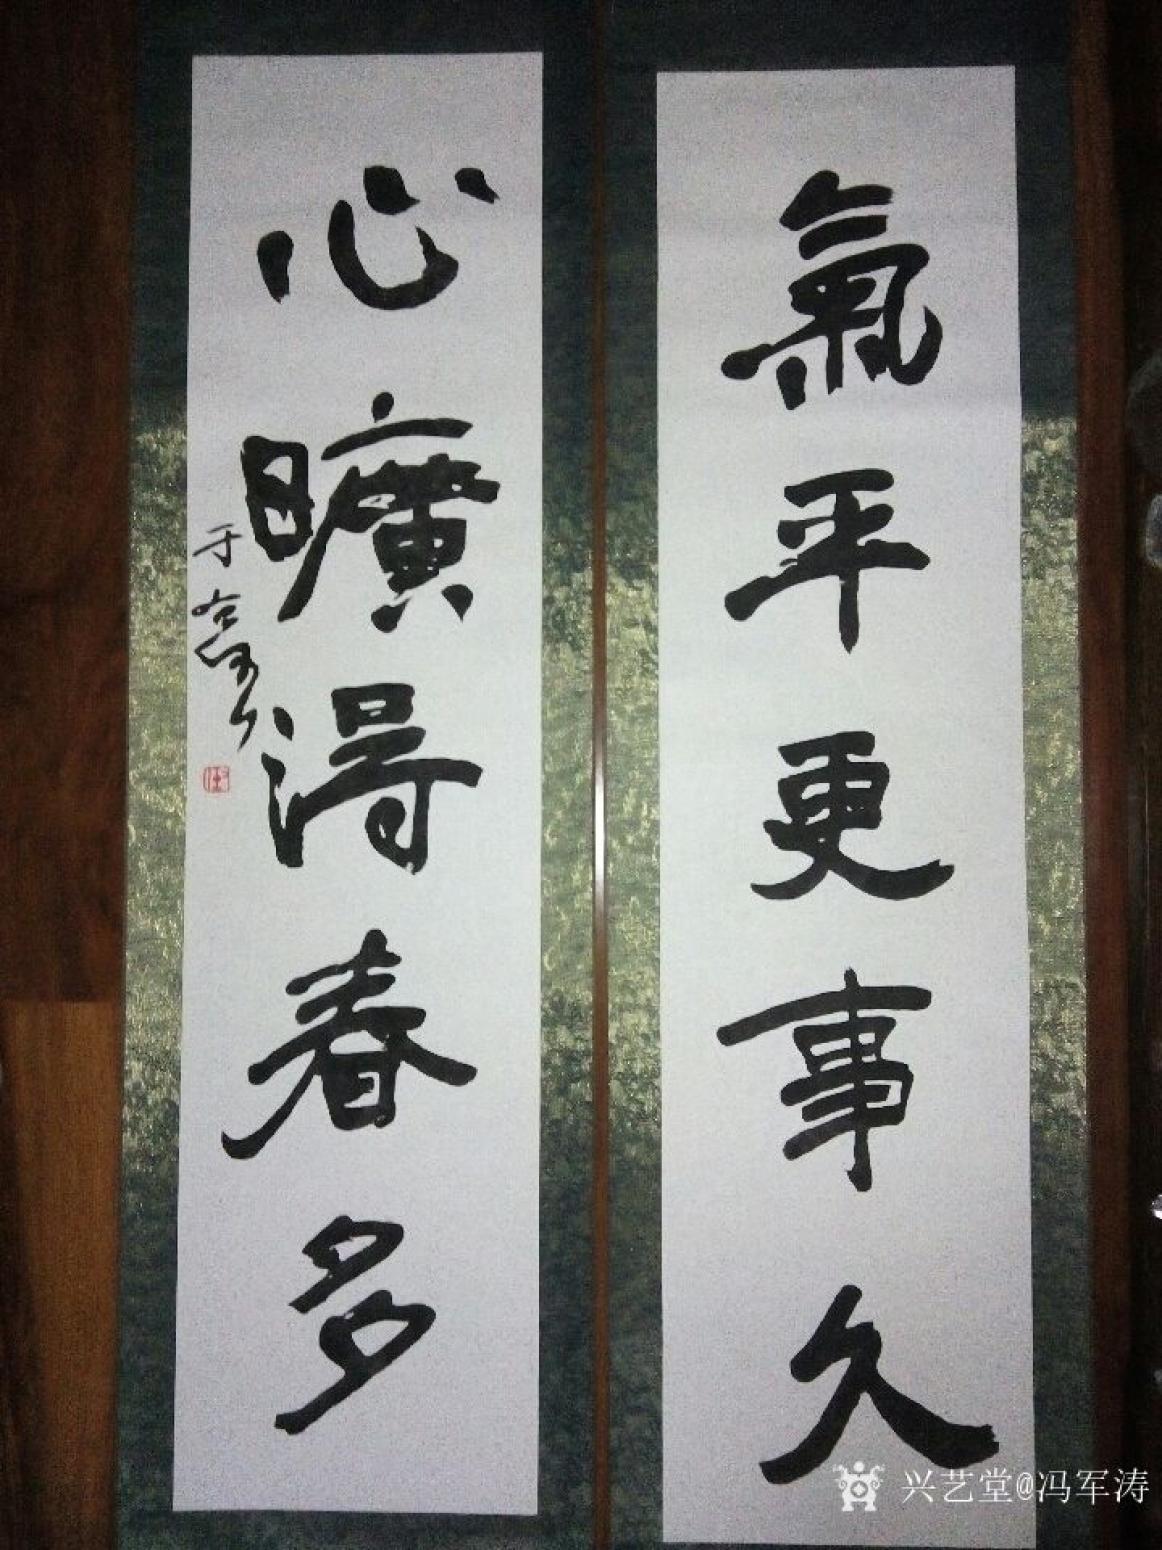 氣平更事久
心曠淂春多
兴艺堂@冯军涛